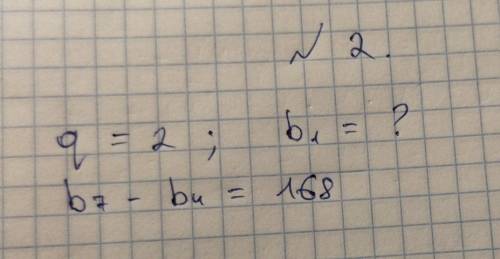 № 2.
q = 2 ; b₁ = ?
b₇ - b₄ = 168